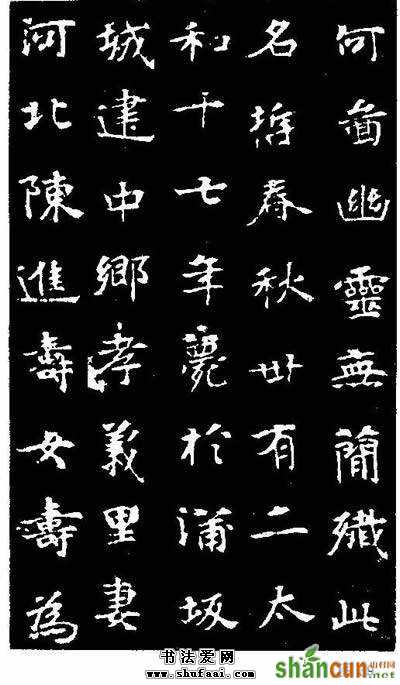 何啚幽靈無簡殲此
名哲春秋卅有二太
和十七年薨於蒲坂
城建中鄉孝義里妻
河北陳進壽女壽為
书法爱网
www.shufaai.com
shancun